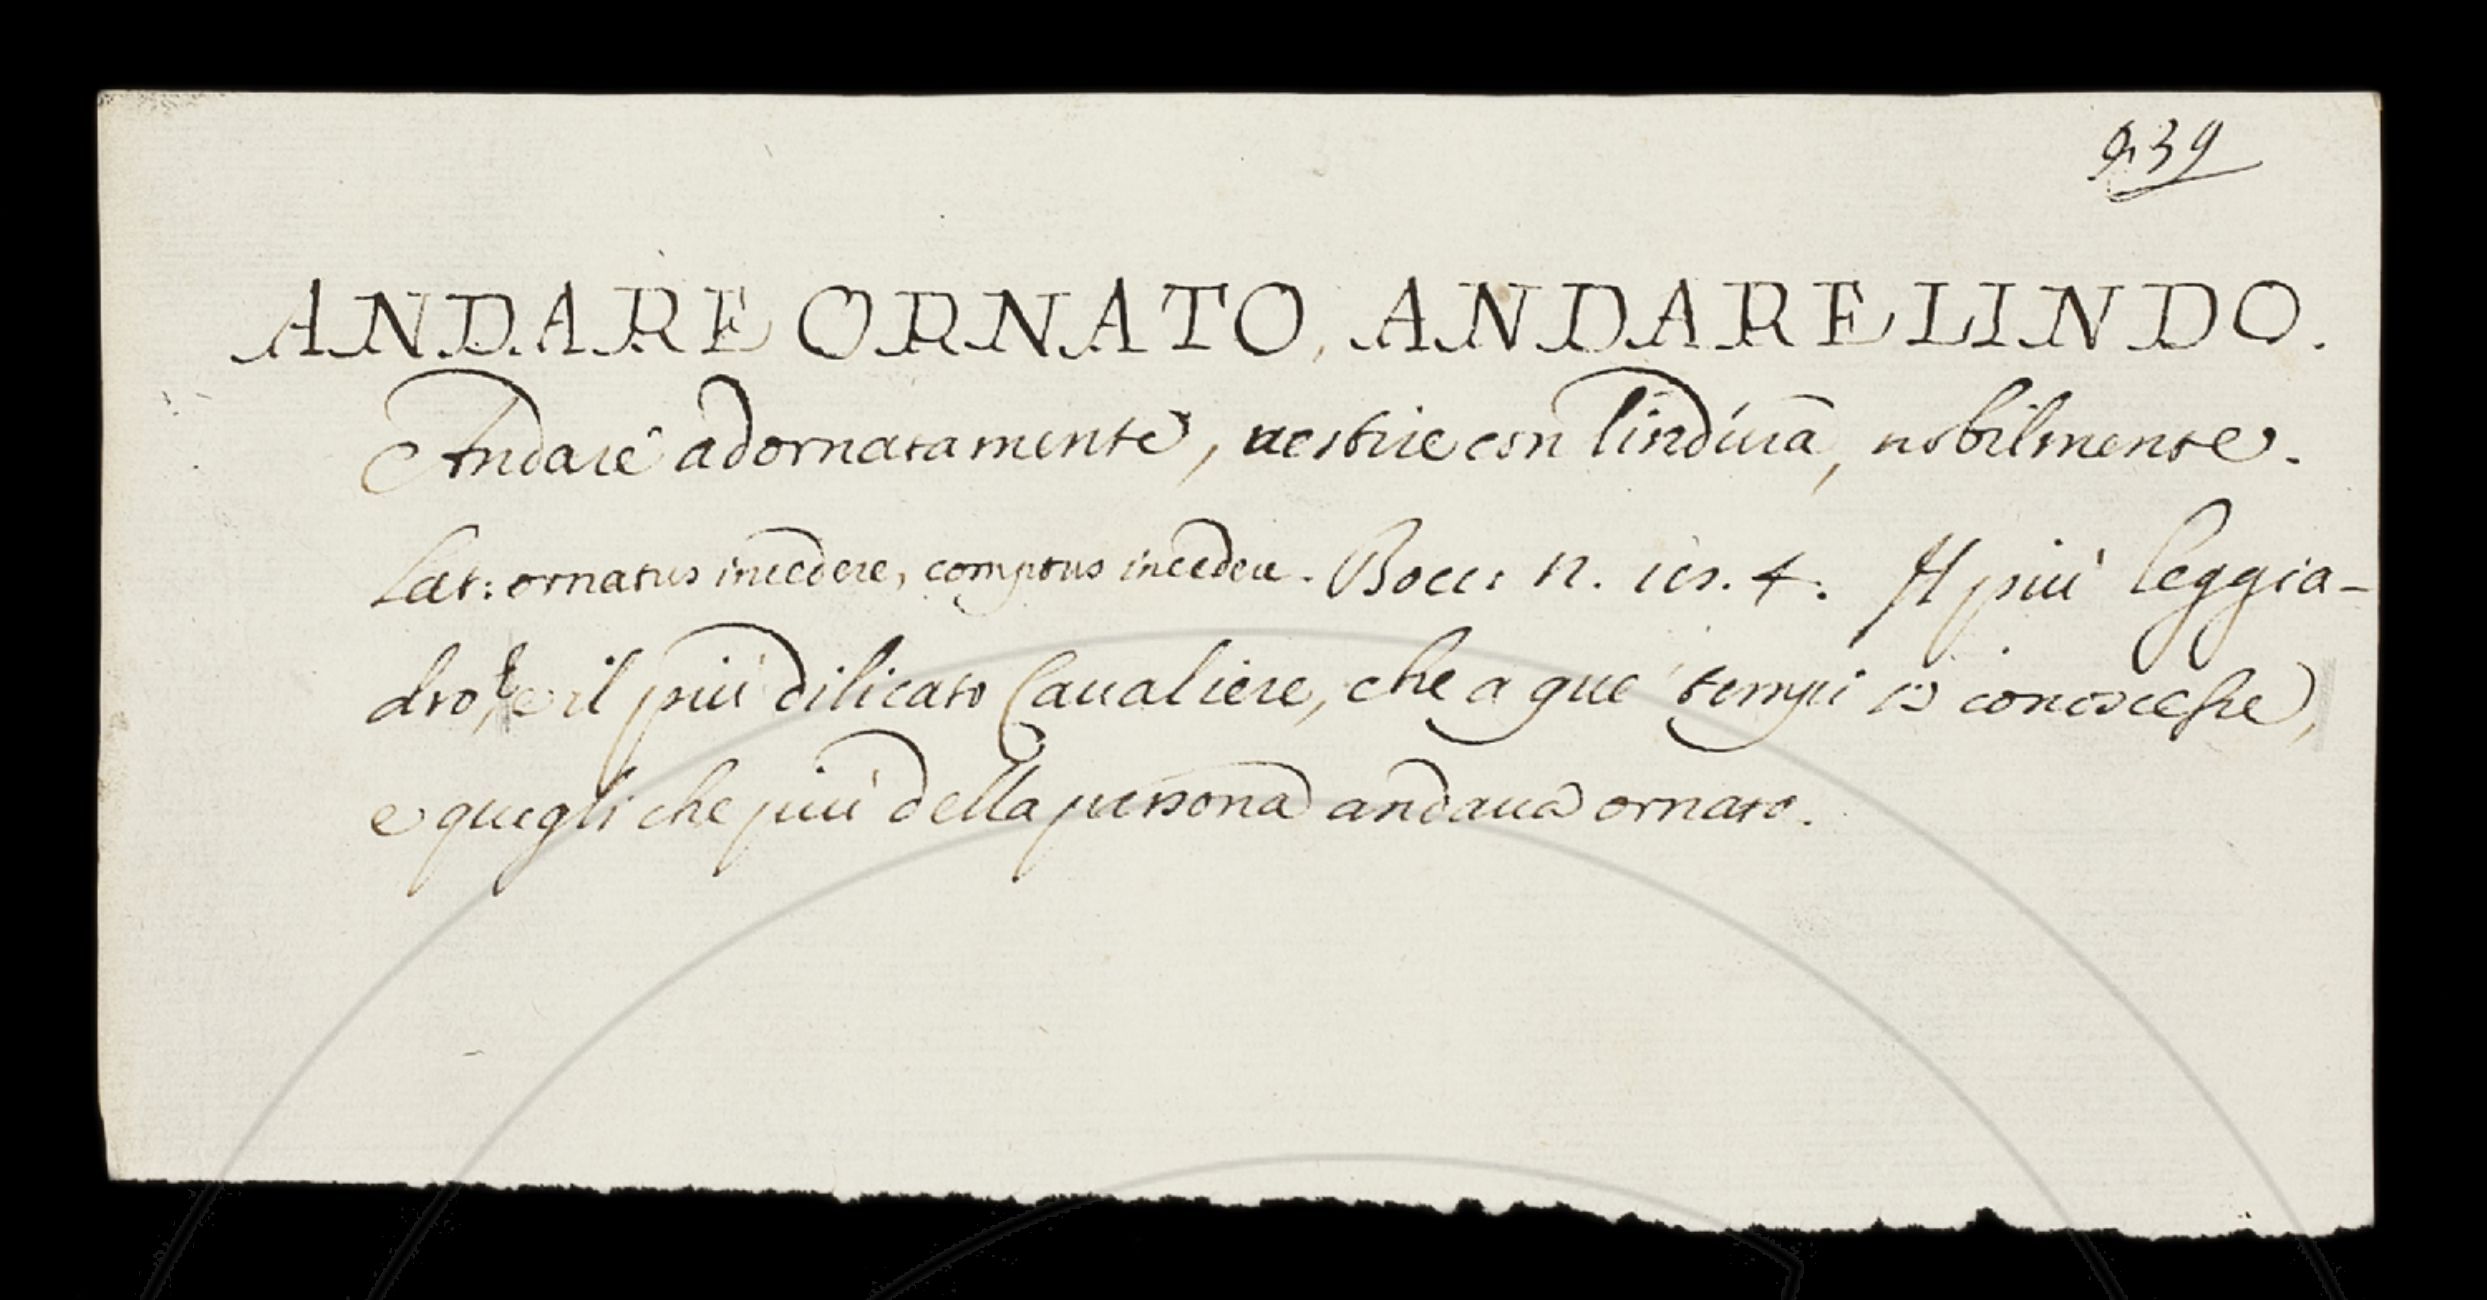 939
ANDARE ORNATO, ANDARE LINDO.
Andare adornatamente, uestire con lindura, nobilmente.
Lat: ornatus incedere, comptus incedere. Bocc: n. 4. Il più leggia-
dro, e il più dilicato Caualiere, che a que' tempi si conoscesse,
e quegli che più della persona andaua ornato.